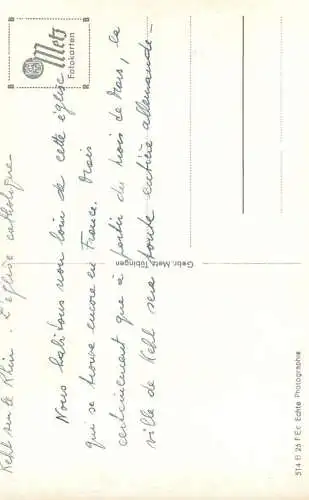 Kehl sur le Rhin. L'église catholique-
Nous habitons non loin de cette église
qui se trouve encore en France. Mais
certainement que à partir du mois de Mars, la
ville de Kehl sera toute entière allemande-
Metz
Fotokarten
Gebr. Metz, Tübingen
514 El 26 F Ec Echte Photographie